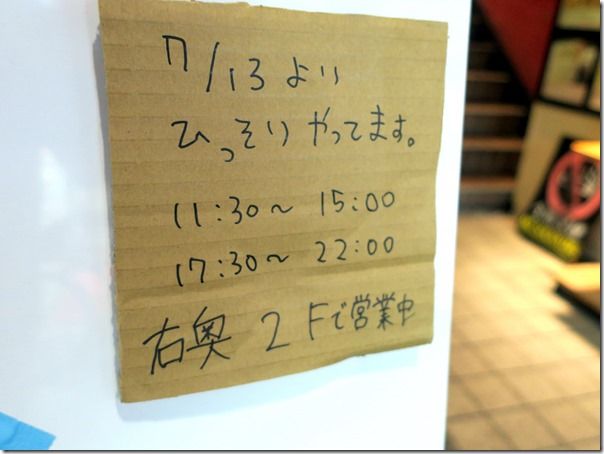 7/13より
ひっそりやってます。
11:30〜 15:00
17:30〜 22:00
右奥 2Fで営業中